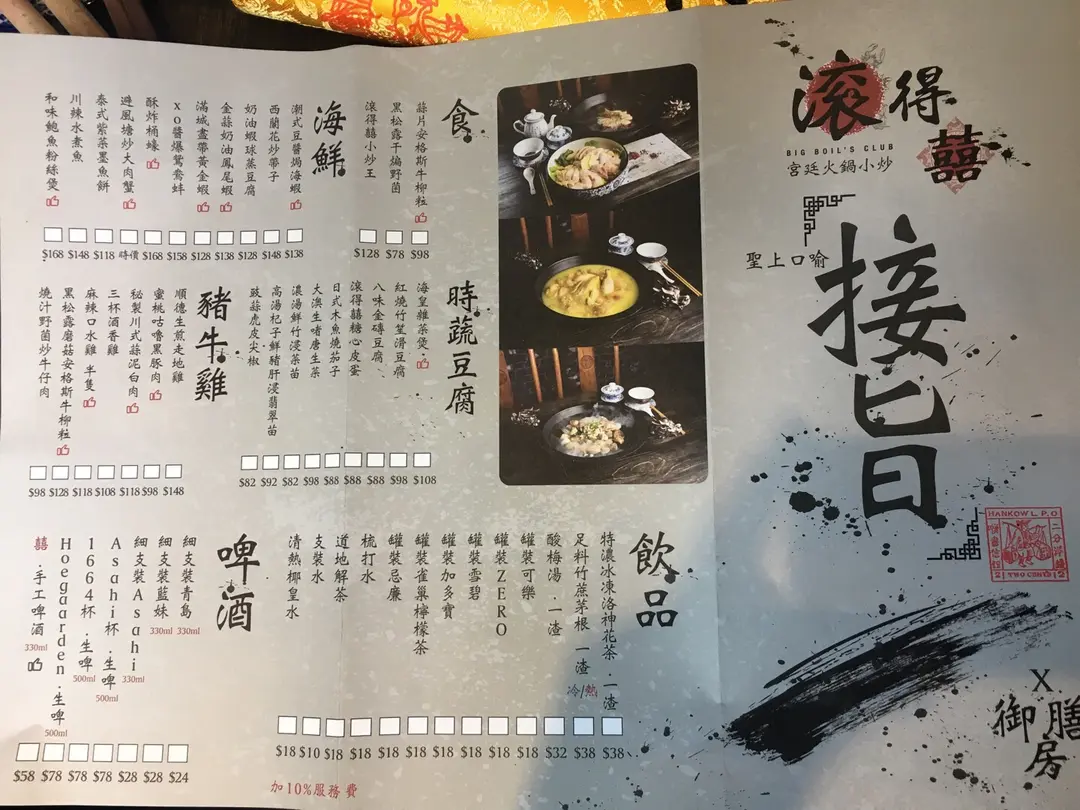 滾得囍
BIG BOIL'S CLUB
宮廷火鍋小炒
聖上口喻
接旨
HANKOW L.P.O
TWO CENTS
X
御膳房
食
蒜片安格斯牛柳粒 $98
黑松露干煸野菌 $78
滾得囍小炒王 $128
海鮮
潮式豆醬焗海蝦 $138
西蘭花炒帶子 $148
奶油蝦球蒸豆腐 $128
金蒜奶油鳳尾蝦 $138
滿城盡帶黃金蝦 $128
XO醬爆鴛鴦蚌 $158
酥炸桶蠔 $168
避風塘炒大肉蟹 時價
泰式紫菜墨魚餅 $118
川辣水煮魚 $148
和味鮑魚粉絲煲 $168
時蔬豆腐
海皇雜菜煲 $108
紅燒竹笙滑豆腐 $98
八味金磚豆腐 $88
滾得囍糖心皮蛋 $88
日式木魚燒茄子 $88
大澳生啫唐生菜 $98
濃湯鮮竹浸菜苗 $82
高湯杞子鮮豬肝浸翡翠苗 $92
豉蒜虎皮尖椒 $82
豬牛雞
順德生煎走地雞 $148
蜜桃咕嚕黑豚肉 $98
秘製川式蒜泥白肉 $118
三杯酒香雞 $108
麻辣口水雞 半隻 $118
黑松露磨菇安格斯牛柳粒 $128
燒汁野菌炒牛仔肉 $98
飲品
特濃冰凍洛神花茶.一渣 $38
足料竹蔗茅根 一渣 冷/熱 $38
酸梅湯.一渣 $32
罐裝可樂 $18
罐裝ZERO $18
罐裝雪碧 $18
罐裝加多寶 $18
罐裝雀巢檸檬茶 $18
罐裝忌廉 $18
梳打水 $18
道地解茶 $18
支裝水 $10
清熱椰皇水 $18
啤酒
細支裝青島 330ml $24
細支裝藍妹 330ml $28
細支裝Asahi 330ml $28
Asahi杯.生啤 500ml $78
1664杯.生啤 500ml $78
Hoegaarden.生啤 500ml $78
囍.手工啤酒 330ml $58
加10%服務費